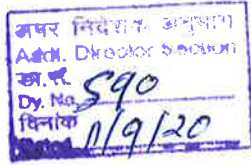 अपर निदेशक अनुभाग
Addl. Director Section
Dy. No. 590
दिनांक 11/9/20